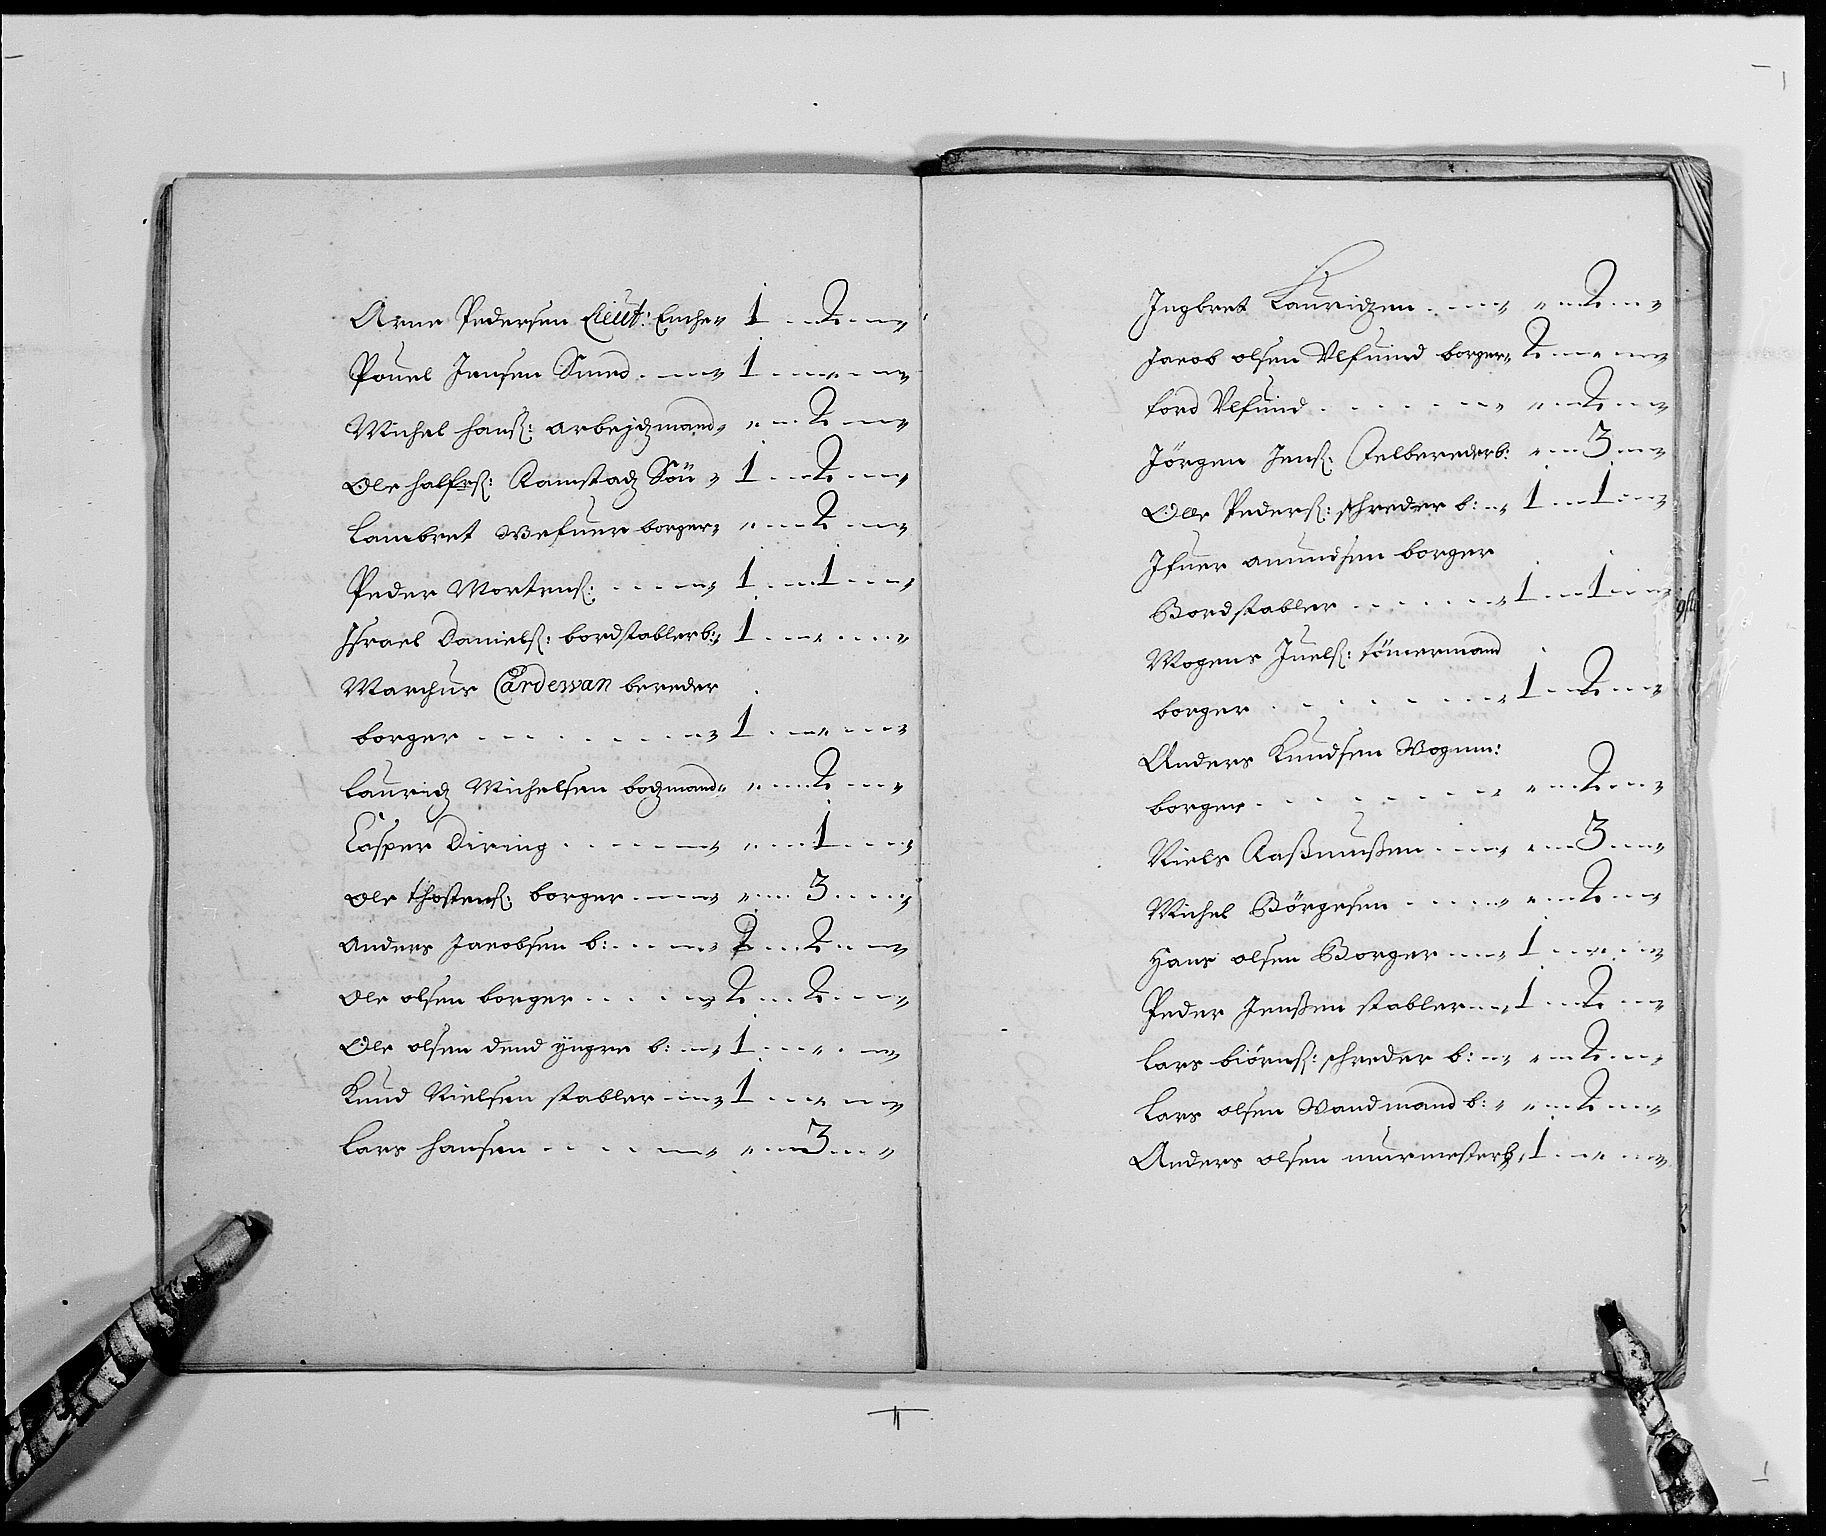 Arne Pedersen Lieut: Enche 1 2
Pouel Jensen Smed 1
Michel hanß: arbejdzmand 2
Ole halfrß: Ramstadz Sön 1 2
Lambret Wefuer borger 2
Peder Mortenß: 1 1
Jsrael Danielß: bordstabler b: 1
Marchus Cardewan bereder
borger 1
Lauridz Michelsen bodzmand 2
Casper Diring 1
Ole thostenß: borger 3
Anders Jacobsen b: 2 2
Ole olsen borger 2 2
Ole olsen dend yngre b: 1
Knud Nielsen stabler 1
Lars hansen 3
Jngbret Lauridzen 2
Jacob olsen Vlfuind borger 2
Tord Vlfuind 2
Jörgen Jenß: Felbereder b: 3
Olle Pederß: schreder b: 1 1
Jfuer amundsen borger
Bordstabler 1 1
Mogens Juelß: tömermand
borger 1 2
Anders Knudsen Wognm:
borger 2
Niels Raßmußen 3
Michel Börgesen 2
Hans olsen Borger 1
Peder Jenßen stabler 1 2
Lars biörnß: schreder b: 2
Lars olsen Wandmand b: 2
Anders olsen murmester b 1